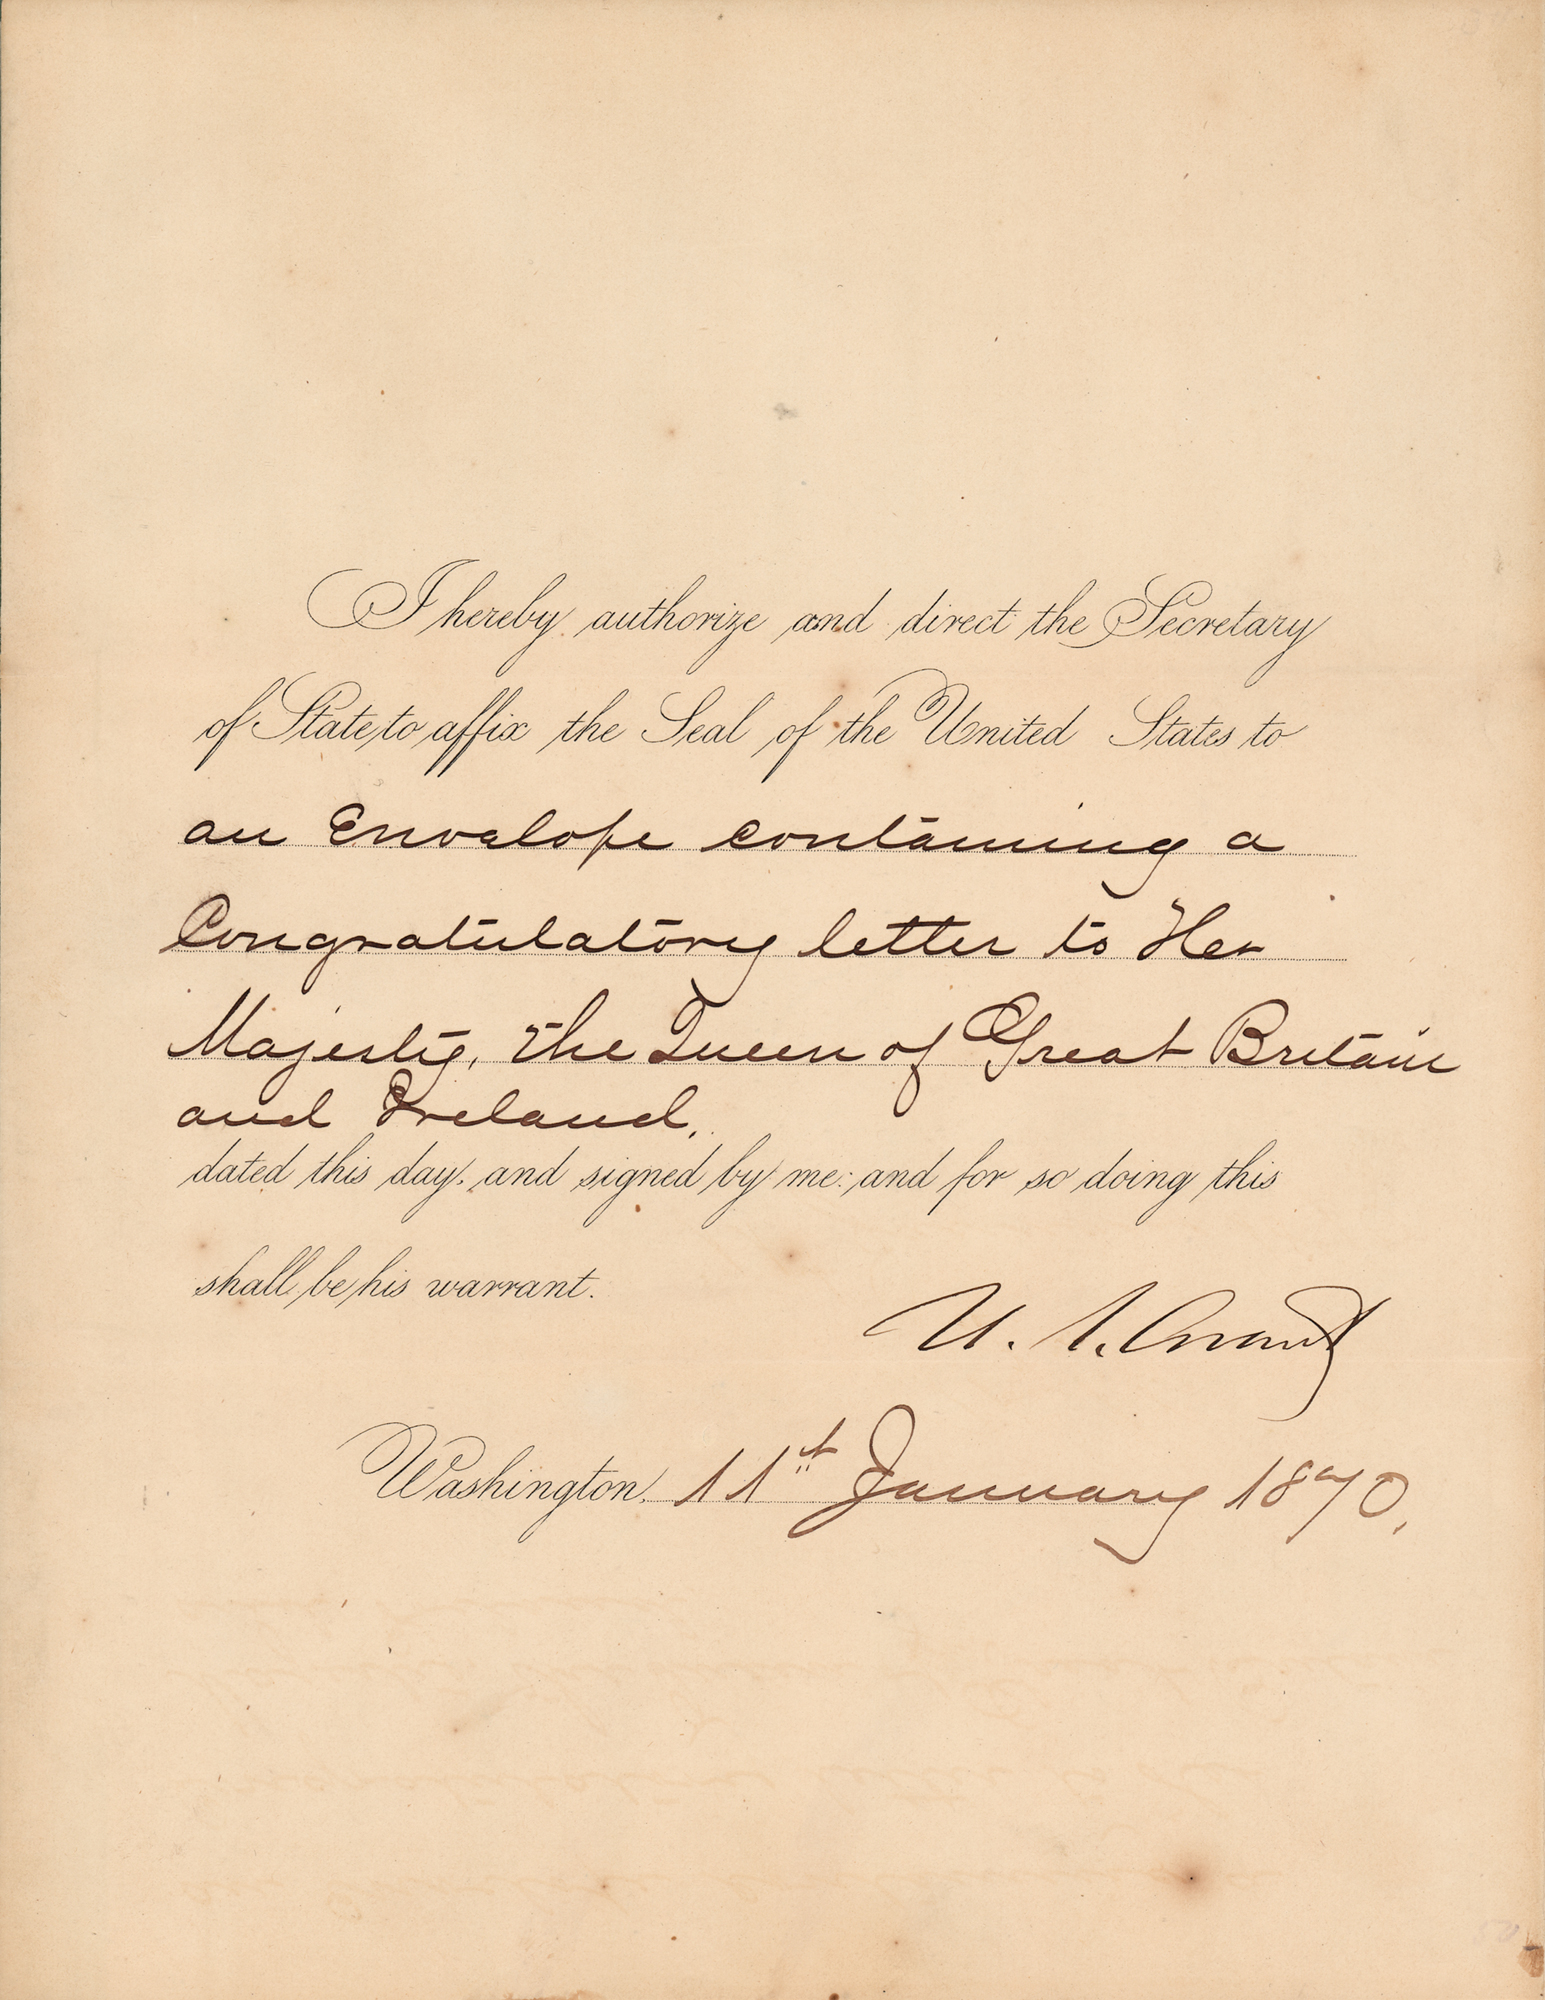 I hereby authorize and direct the Secretary
of State to affix the Seal of the United States to
an Envelope containing a
Congratulatory letter to Her
Majesty, the Queen of Great Britain
and Ireland.
dated this day, and signed by me: and for so doing this
shall be his warrant.
U. S. Grant
Washington, 11th January 1870.